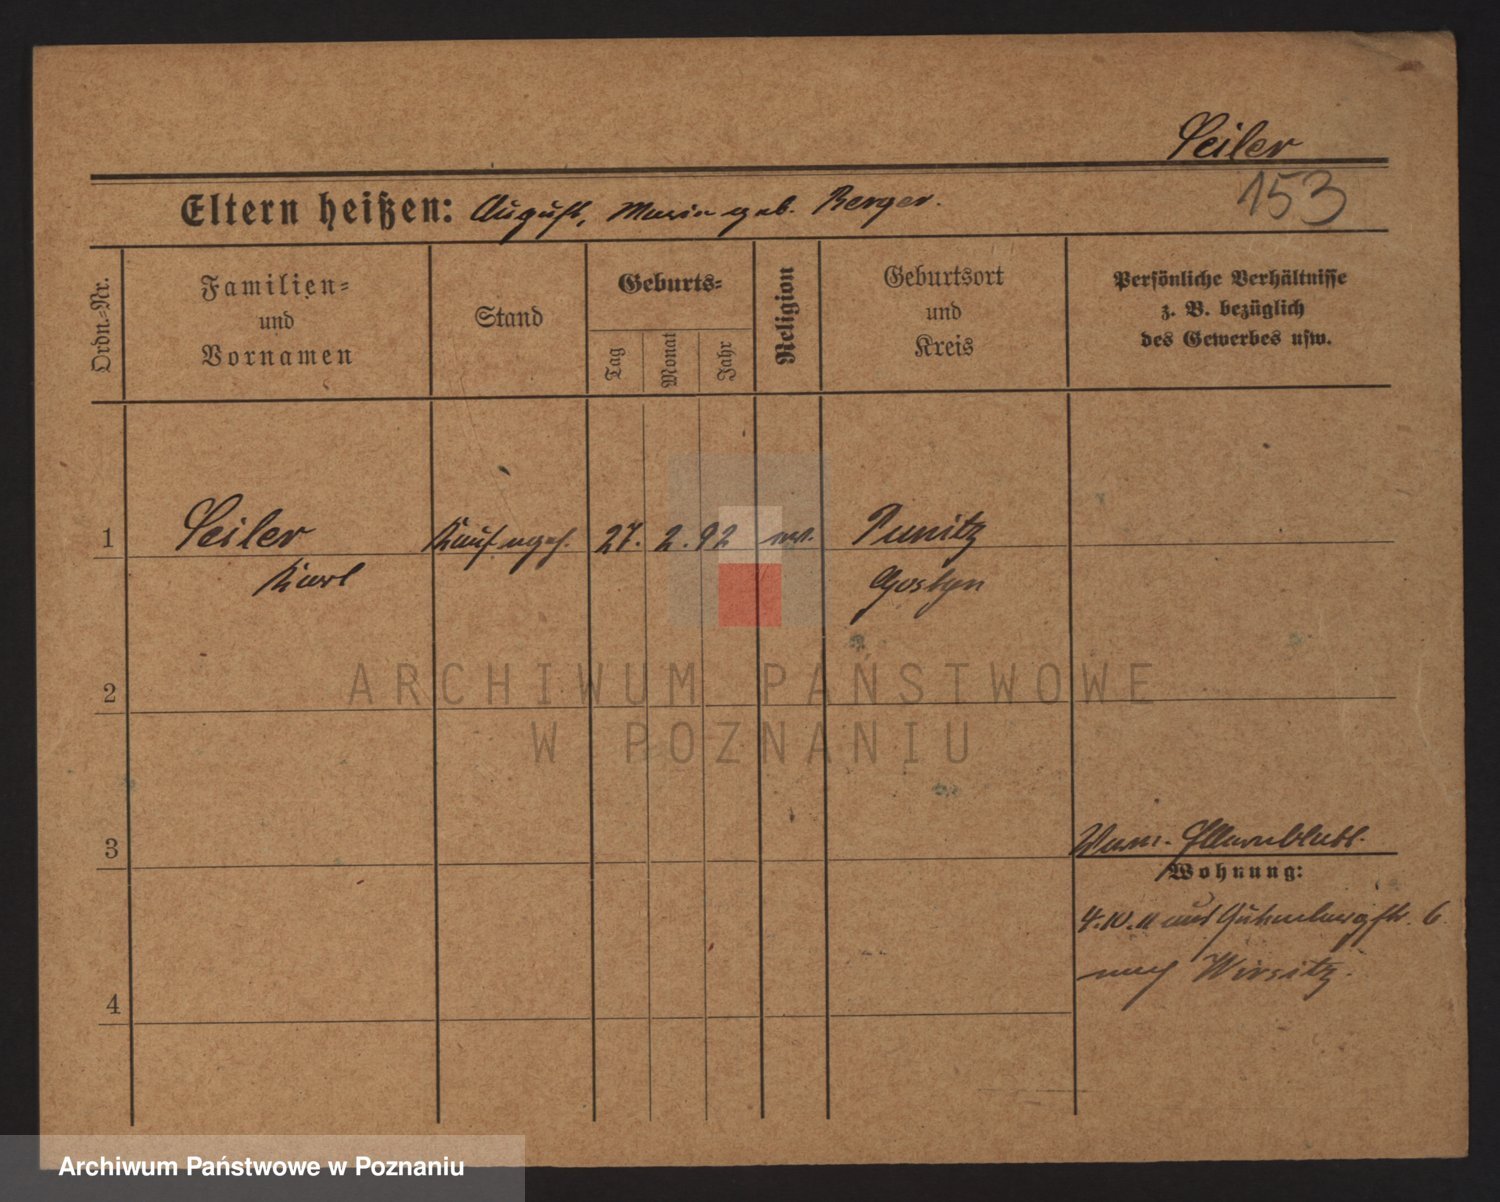 Seiler
153
Eltern heißen: August, Maria geb. Berger.
Ordn.-Nr.
Familien-
und
Vornamen
Stand
Geburts-
Tag
Monat
Jahr
Religion
Geburtsort
und
Kreis
Persönliche Verhältnisse
z. B. bezüglich
des Gewerbes usw.
1 Seiler 27. 2. 92 Punitz
Karl Gostyn
2
3
Wohnung:
4.10.11 aus 6
nach Wirsitz.
4
ARCHIWUM PAŃSTWOWE
W POZNANIU
Archiwum Państwowe w Poznaniu